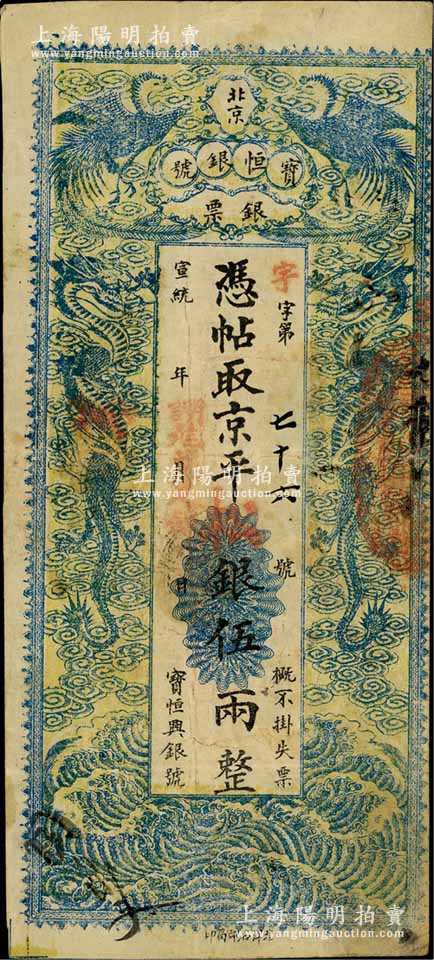 上海陽明拍賣
www.yangmingauction.com
北京
寶恒銀號
銀票
字字第七十六號 概不掛失票
憑帖取京平銀伍兩整
宣統 年 月 日 寶恒興銀號
上海陽明拍賣
www.yangmingauction.com
上海陽明拍賣
www.yangmingauction.com